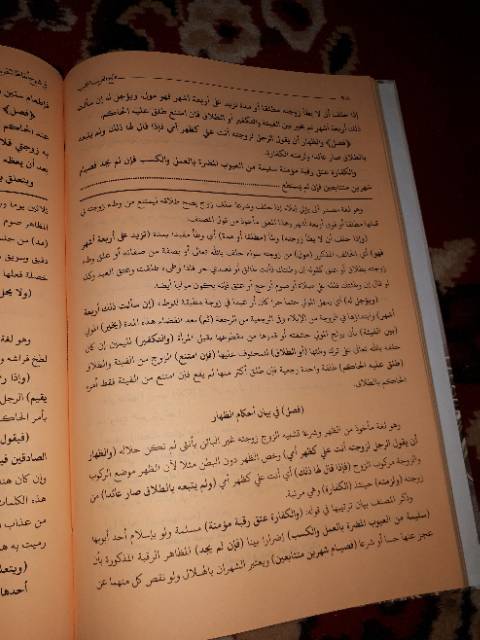 إذا حلف أن لا يطأ زوجته مطلقا أو مدة تزيد على أربعة أشهر فهو مول. ويؤجل له إن سألت
ذلك أربعة أشهر ثم يخير بين الفيئة والتكفير أو الطلاق فإن امتنع طلق عليه الحاكم.
﴿فصل﴾ والظهار أن يقول الرجل لزوجته أنت علي كظهر أمي فإذا قال لها ذلك ولم يتبعه
بالطلاق صار عائدا ولزمته الكفارة.
والكفارة عتق رقبة مؤمنة سليمة من العيوب المضرة بالعمل والكسب فإن لم يجد فصيام
شهرين متتابعين فإن لم يستطع
وهو لغة مصدر آلى يؤلي إيلاء إذا حلف وشرعا حلف زوج يصح طلاقه ليمتنع من وطء زوجته في
قبلها مطلقا أو فوق أربعة أشهر وهذا المعنى مأخوذ من قول المصنف.
(وإذا حلف أن لا يطأ زوجته) وطأ (مطلقا أو مدة) أي وطأ مقيدا بمدة (تزيد على أربعة أشهر
فهو) أي الحالف المذكور (مول) من زوجته سواء حلف بالله تعالى أو بصفة من صفاته أو علق وطء
زوجته بطلاق أو عتق كقوله إن وطئتك فأنت طالق أو فعبدي حر فإذا وطىء طلقت وعتق العبد وكذا
لو قال إن وطئتك فلله علي صلاة أو صوم أو حج أو عتق فإنه يكون موليا أيضا.
(ويؤجل له) أي يمهل المولي حتما حرا كان أو عبدا في زوجة مطيقة للوطء (إن سألت ذلك أربعة
أشهر) وابتداؤها في الزوجة من الإيلاء وفي الرجعية من الرجعة (ثم) بعد انقضاء هذه المدة (يخير) المولي
(بين الفيئة) بأن يولج المولي حشفته أو قدرها من مقطوعها بقبل المرأة (والتكفير) لليمين إن كان
حلفه بالله تعالى على ترك وطئها (أو الطلاق) للمحلوف عليها (فإن امتنع) الزوج من الفيئة والطلاق
(طلق عليه الحاكم) طلقة واحدة رجعية فإن طلق أكثر منها لم يقع فإن امتنع من الفيئة فقط أمره
الحاكم بالطلاق.
(فصل) في بيان أحكام الظهار
وهو لغة مأخوذ من الظهر وشرعا تشبيه الزوج زوجته غير البائن بأنثى لم تكن حلاله (والظهار
أن يقول الرجل لزوجته أنت علي كظهر أمي) وخص الظهر دون البطن مثلا لأن الظهر موضع الركوب
والزوجة مركوب الزوج (فإذا قال لها ذلك) أي أنت علي كظهر أمي (ولم يتبعه بالطلاق صار عائدا) من
زوجته (ولزمته) حينئذ (الكفارة) وهي مرتبة.
وذكر المصنف بيان ترتيبها في قوله: (والكفارة عتق رقبة مؤمنة) مسلمة ولو بإسلام أحد أبويها
(سليمة من العيوب المضرة بالعمل والكسب) إضرارا بينا (فإن لم يجد) المظاهر الرقبة المذكورة بأن
عجز عنها حسا أو شرعا (فصيام شهرين متتابعين) ويعتبر الشهران بالهلال ولو نقص كل منهما عن